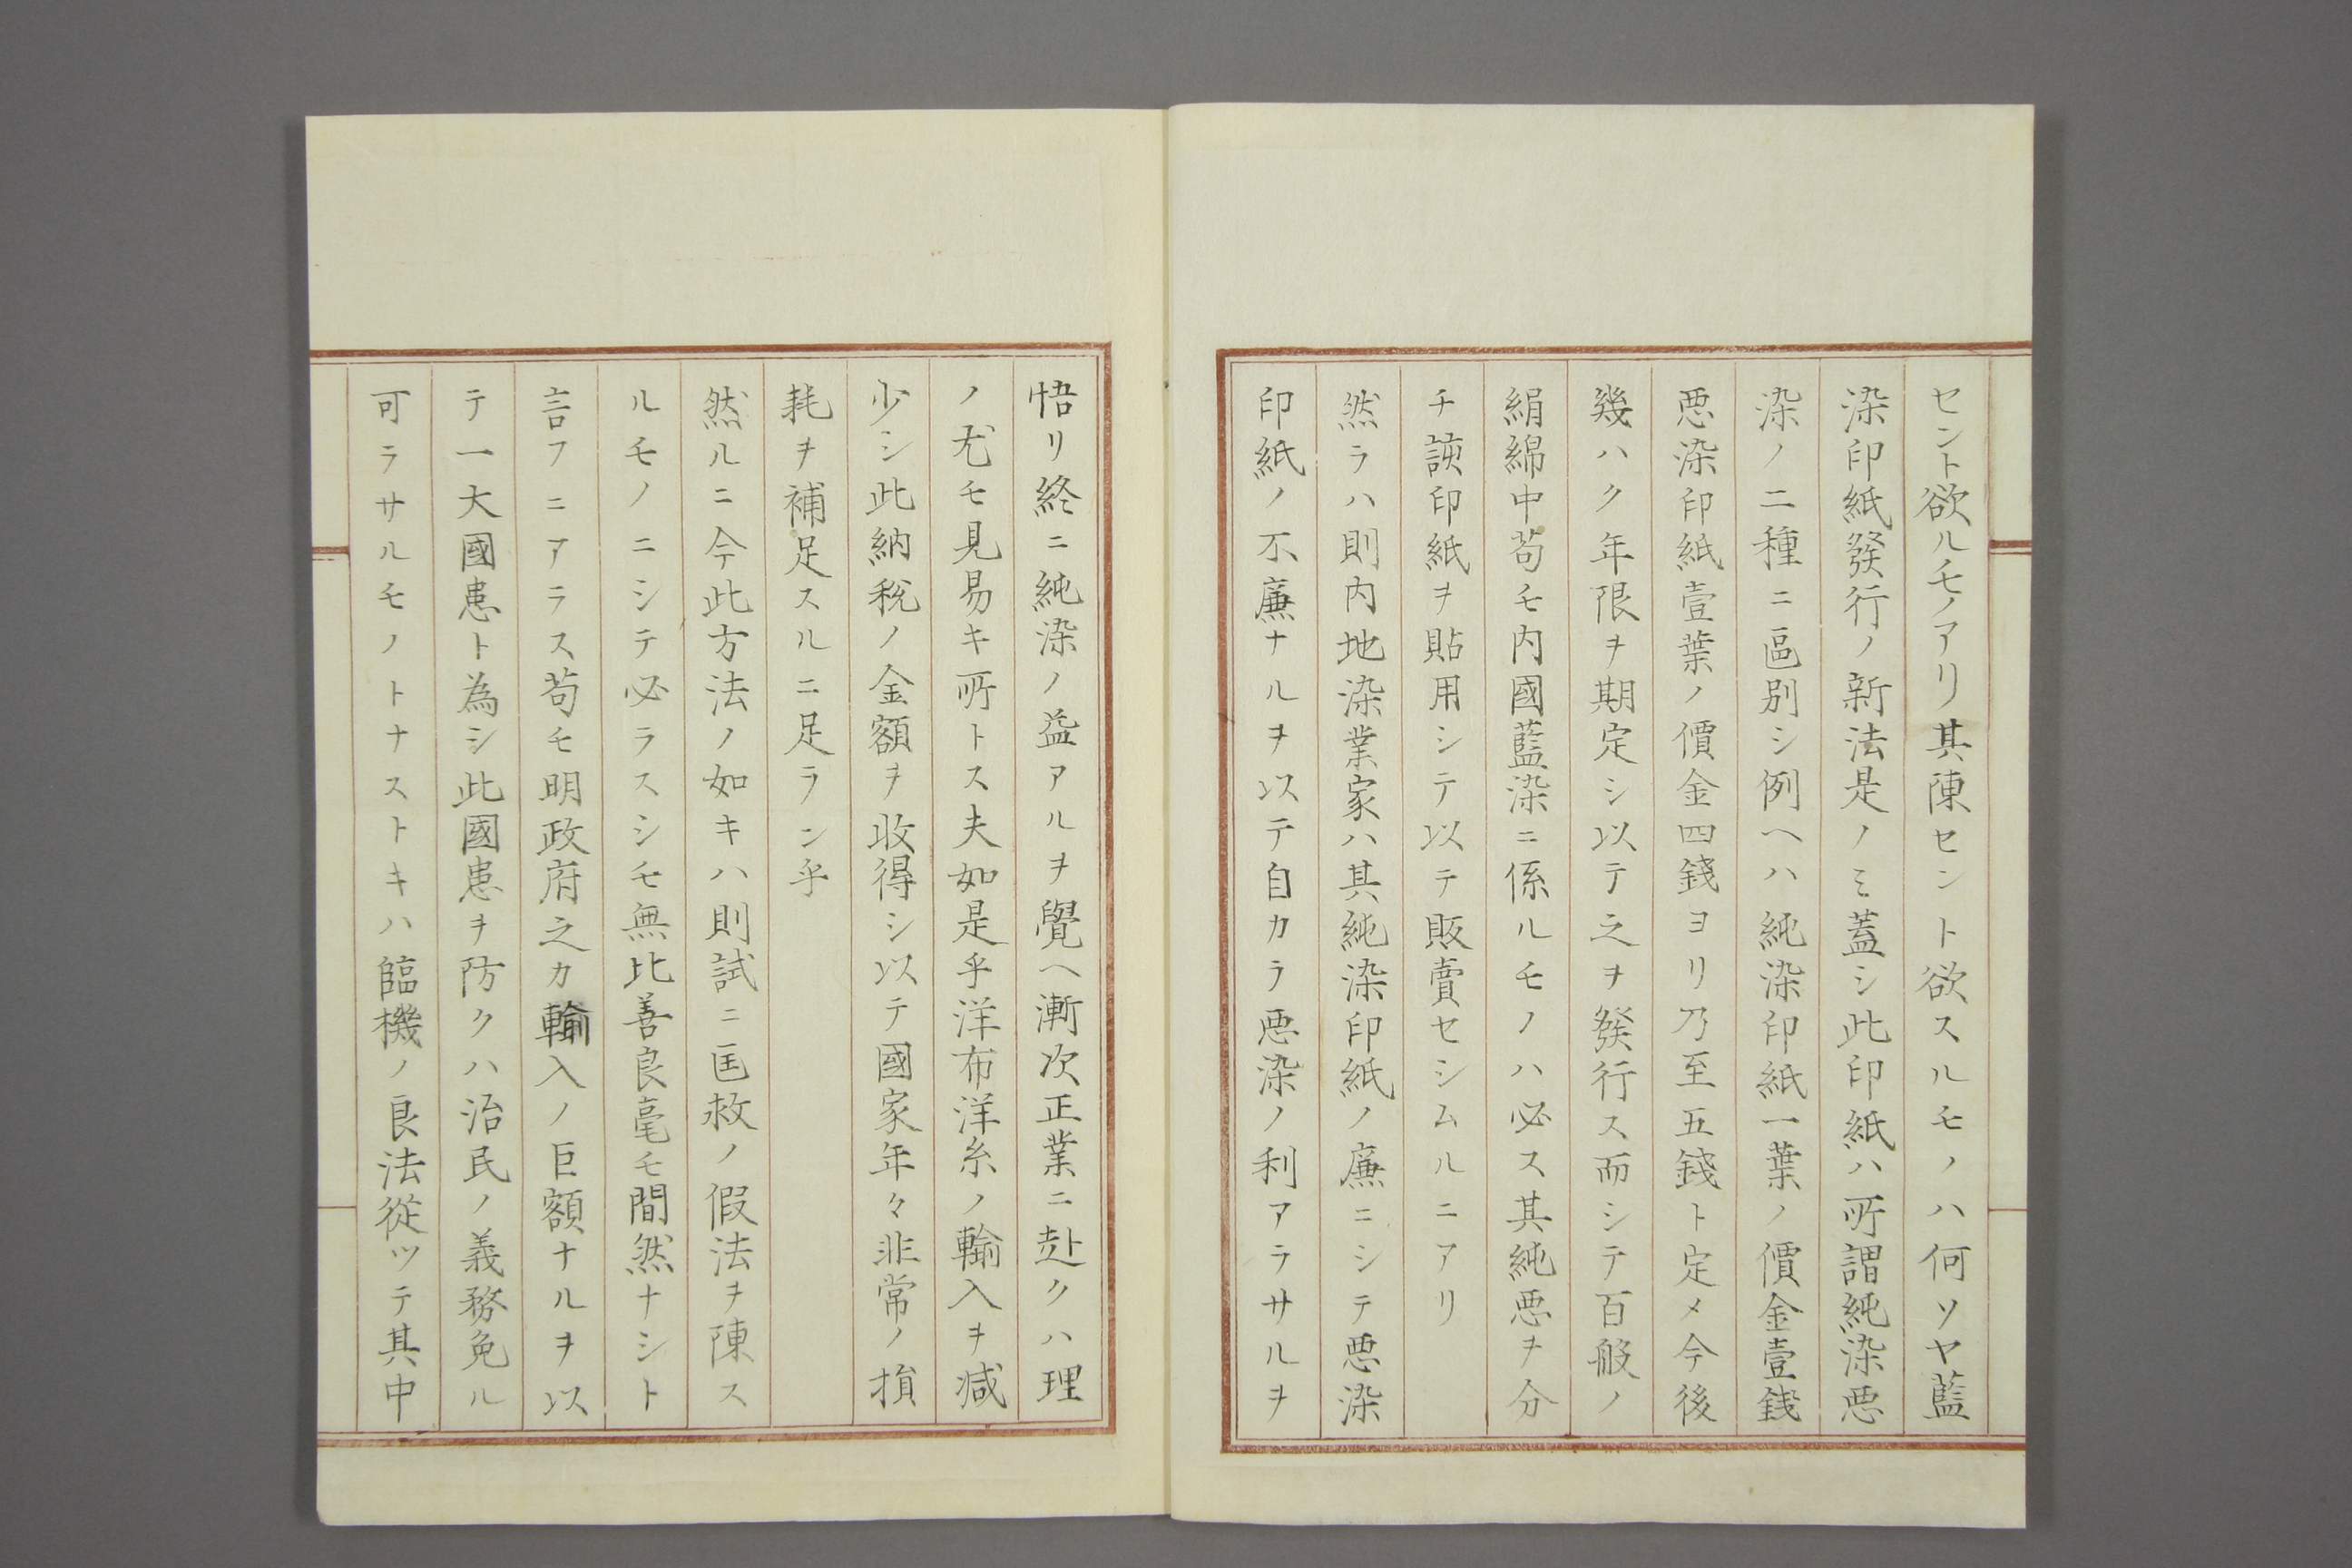 セント欲ルモノアリ其陳セント欲スルモノハ何ソヤ藍
染印紙發行ノ新法是ノミ蓋シ此印紙ハ所謂純染悪
染ノ二種ニ區別シ例ヘハ純染印紙一葉ノ價金壹錢
悪染印紙壹葉ノ價金四錢ヨリ乃至五錢ト定メ今後
幾ハク年限ヲ期定シ以テ之ヲ發行ス而シテ百般ノ
絹綿中苟モ内國藍染ニ係ルモノハ必ス其純悪ヲ分
チ該印紙ヲ貼用シテ以テ販賣セシムルニアリ
然ラハ則内地染業家ハ其純染印紙ノ廉ニシテ悪染
印紙ノ不廉ナルヲ以テ自カラ悪染ノ利アラサルヲ
悟リ終ニ純染ノ益アルヲ覺ヘ漸次正業ニ赴クハ理
ノ尤モ見易キ所トス夫如是乎洋布洋糸ノ輸入ヲ減
少シ此納税ノ金額ヲ收得シ以テ國家年々非常ノ損
耗ヲ補足スルニ足ラン乎
然ルニ今此方法ノ如キハ則試ニ匡救ノ假法ヲ陳ス
ルモノニシテ必ラスシモ無比善良毫モ間然ナシト
言フニアラス苟モ明政府之カ輸入ノ巨額ナルヲ以
テ一大國患ト為シ此國患ヲ防クハ治民ノ義務免ル
可ラサルモノトナストキハ臨機ノ良法從ツテ其中